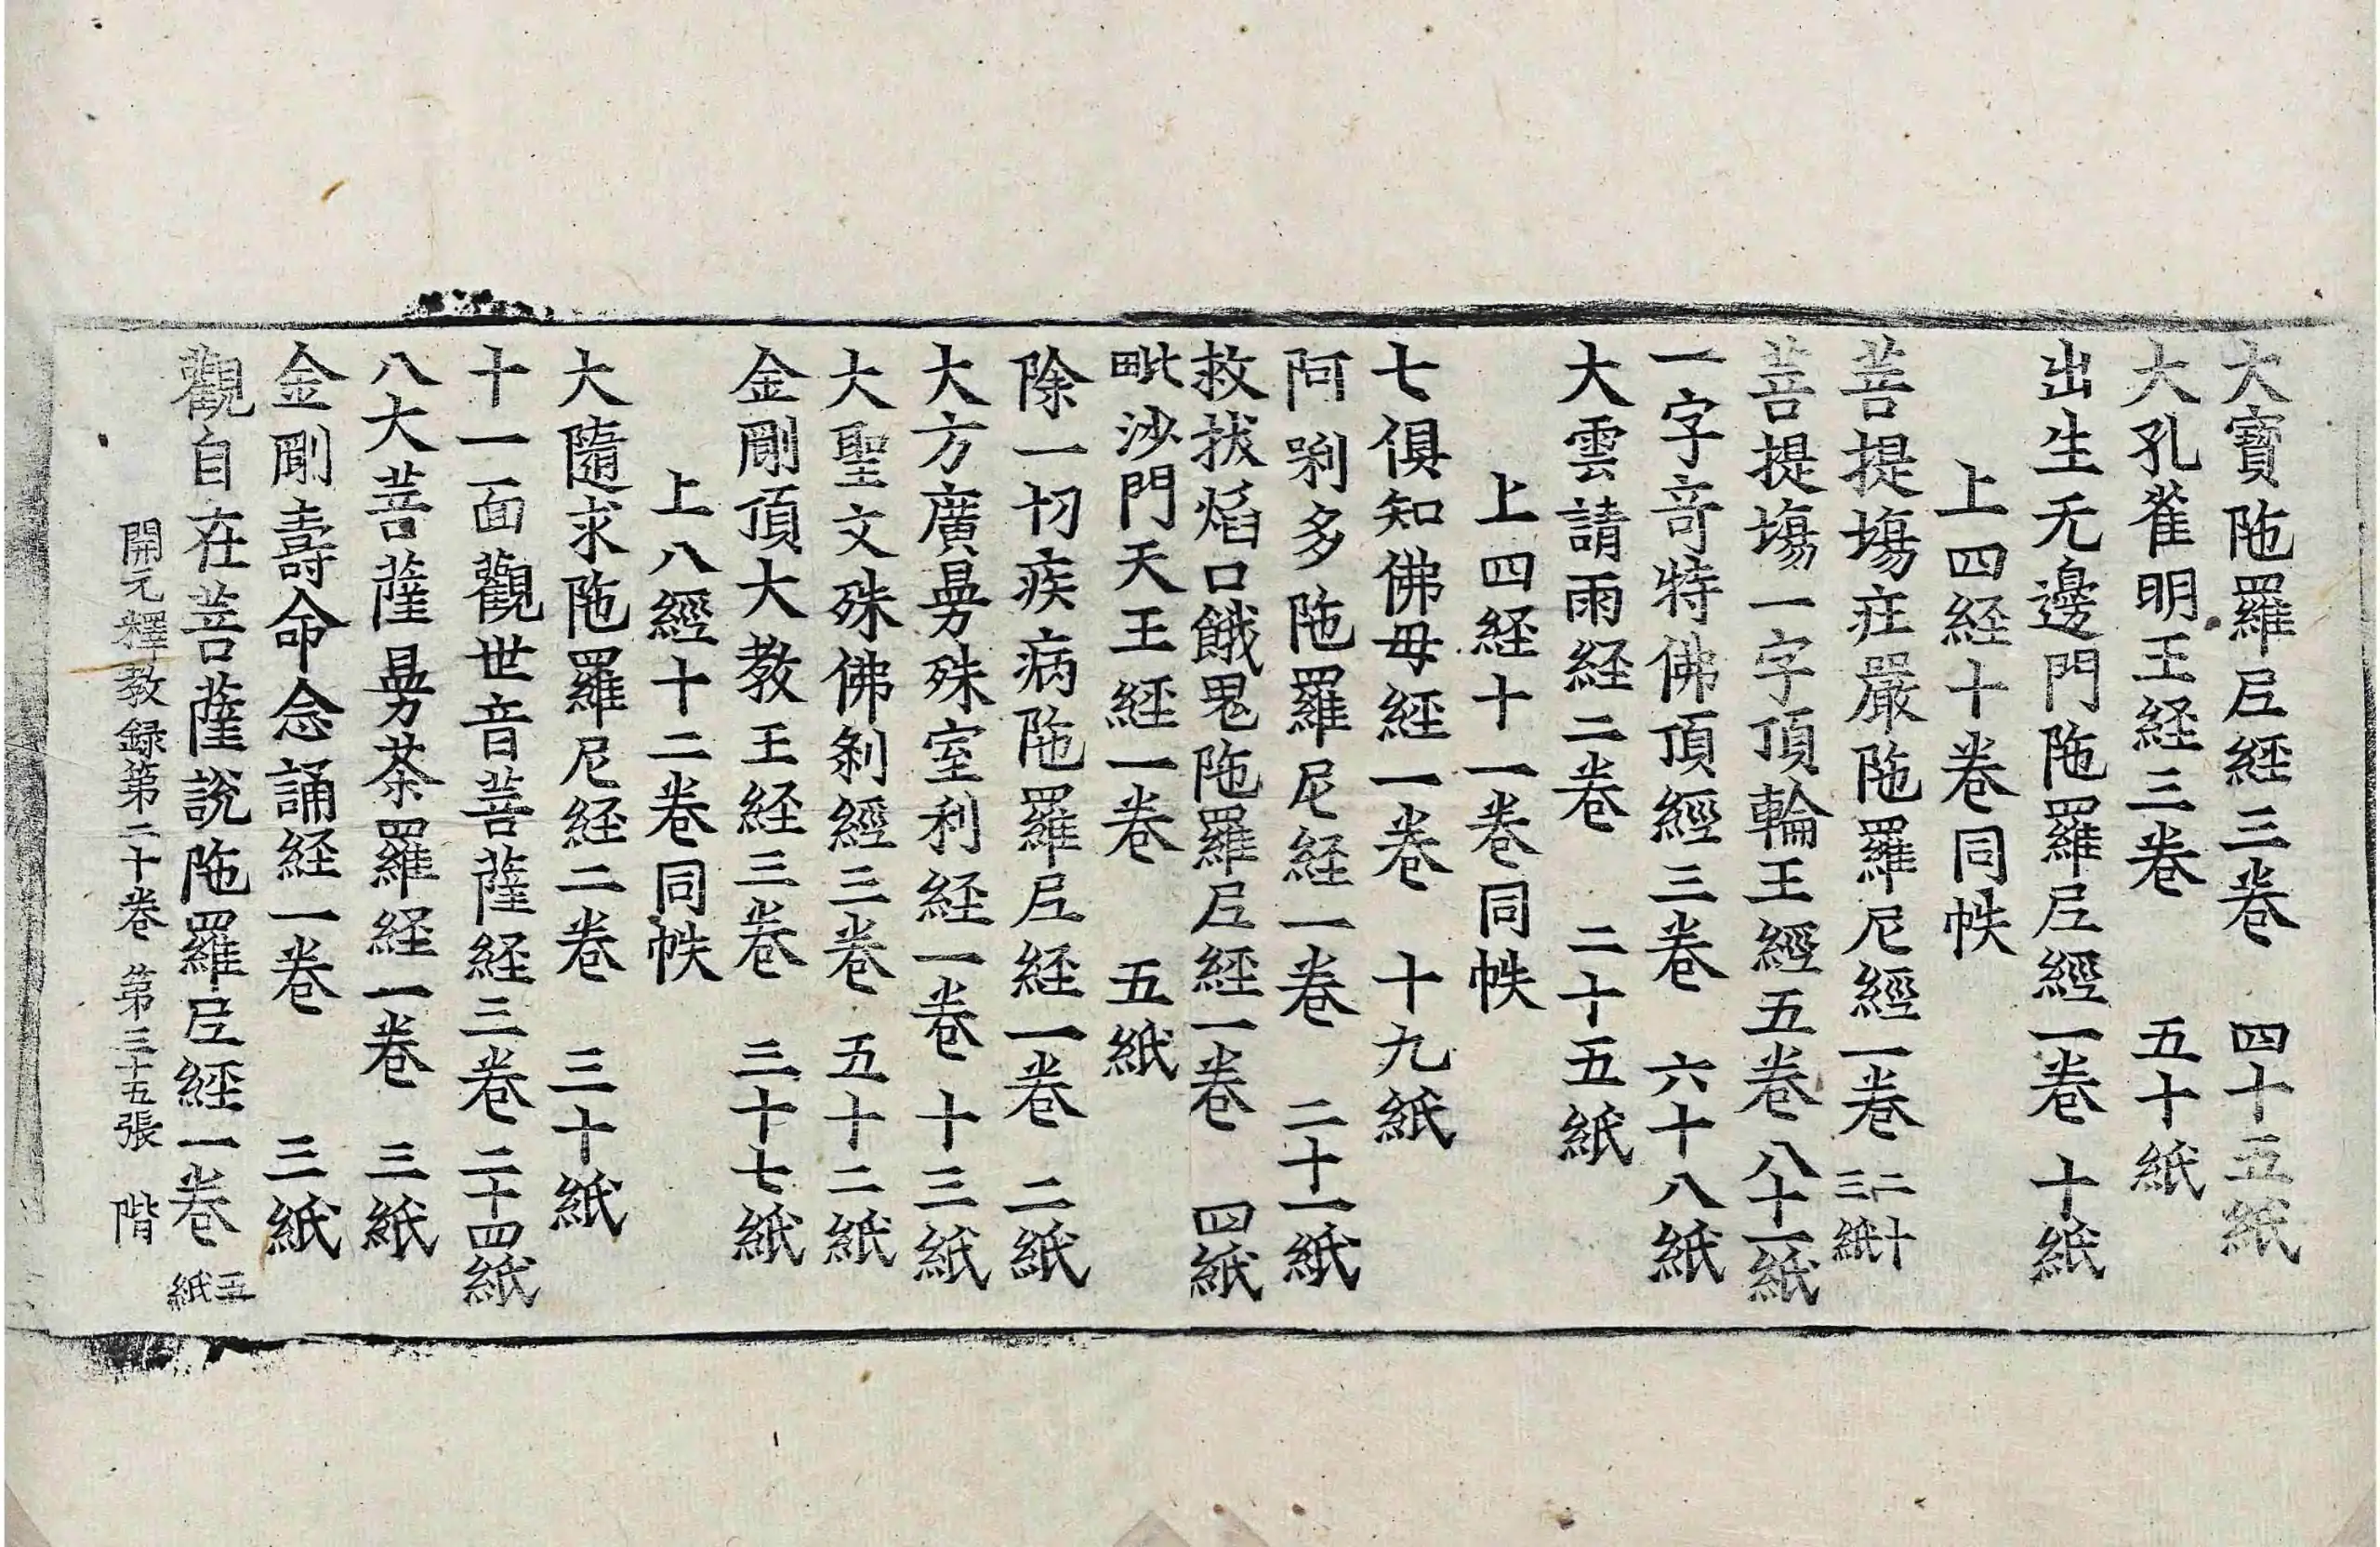 大寶陁羅𡰱経三卷　四十五紙
大孔雀明王経三卷　五十紙
出生无邊門陁羅𡰱經一卷　十紙
上四経十卷同帙
菩提塲疰嚴陁羅尼經一卷　二十三紙
菩提塲一字頂輪王經五卷　八十一紙
一字竒特佛頂經三卷　六十八紙
大雲請雨経二卷　二十五紙
上四経十一卷同帙
七俱知佛毋経一卷　十九紙
阿唎多陁羅尼経一卷　二十一紙
救拔焰口餓鬼陁羅𡰱經一卷　四紙
毗沙門天王經一卷　五紙
除一切疾病陁羅𡰱経一卷　二紙
大方廣曼殊室利経一卷　十三紙
大聖文殊佛刹經三卷　五十二紙
金剛頂大教王経三卷　三十七紙
上八經十二卷同帙
大隨求陁羅尼経二卷　三十紙
十一面觀世音菩薩経三卷　二十四紙
八大菩薩曼荼羅経一卷　三紙
金剛壽命念誦経一卷　三紙
觀自在菩薩說陁羅𡰱経一卷　五紙
開元釋教録第二十卷　第三十五張　階